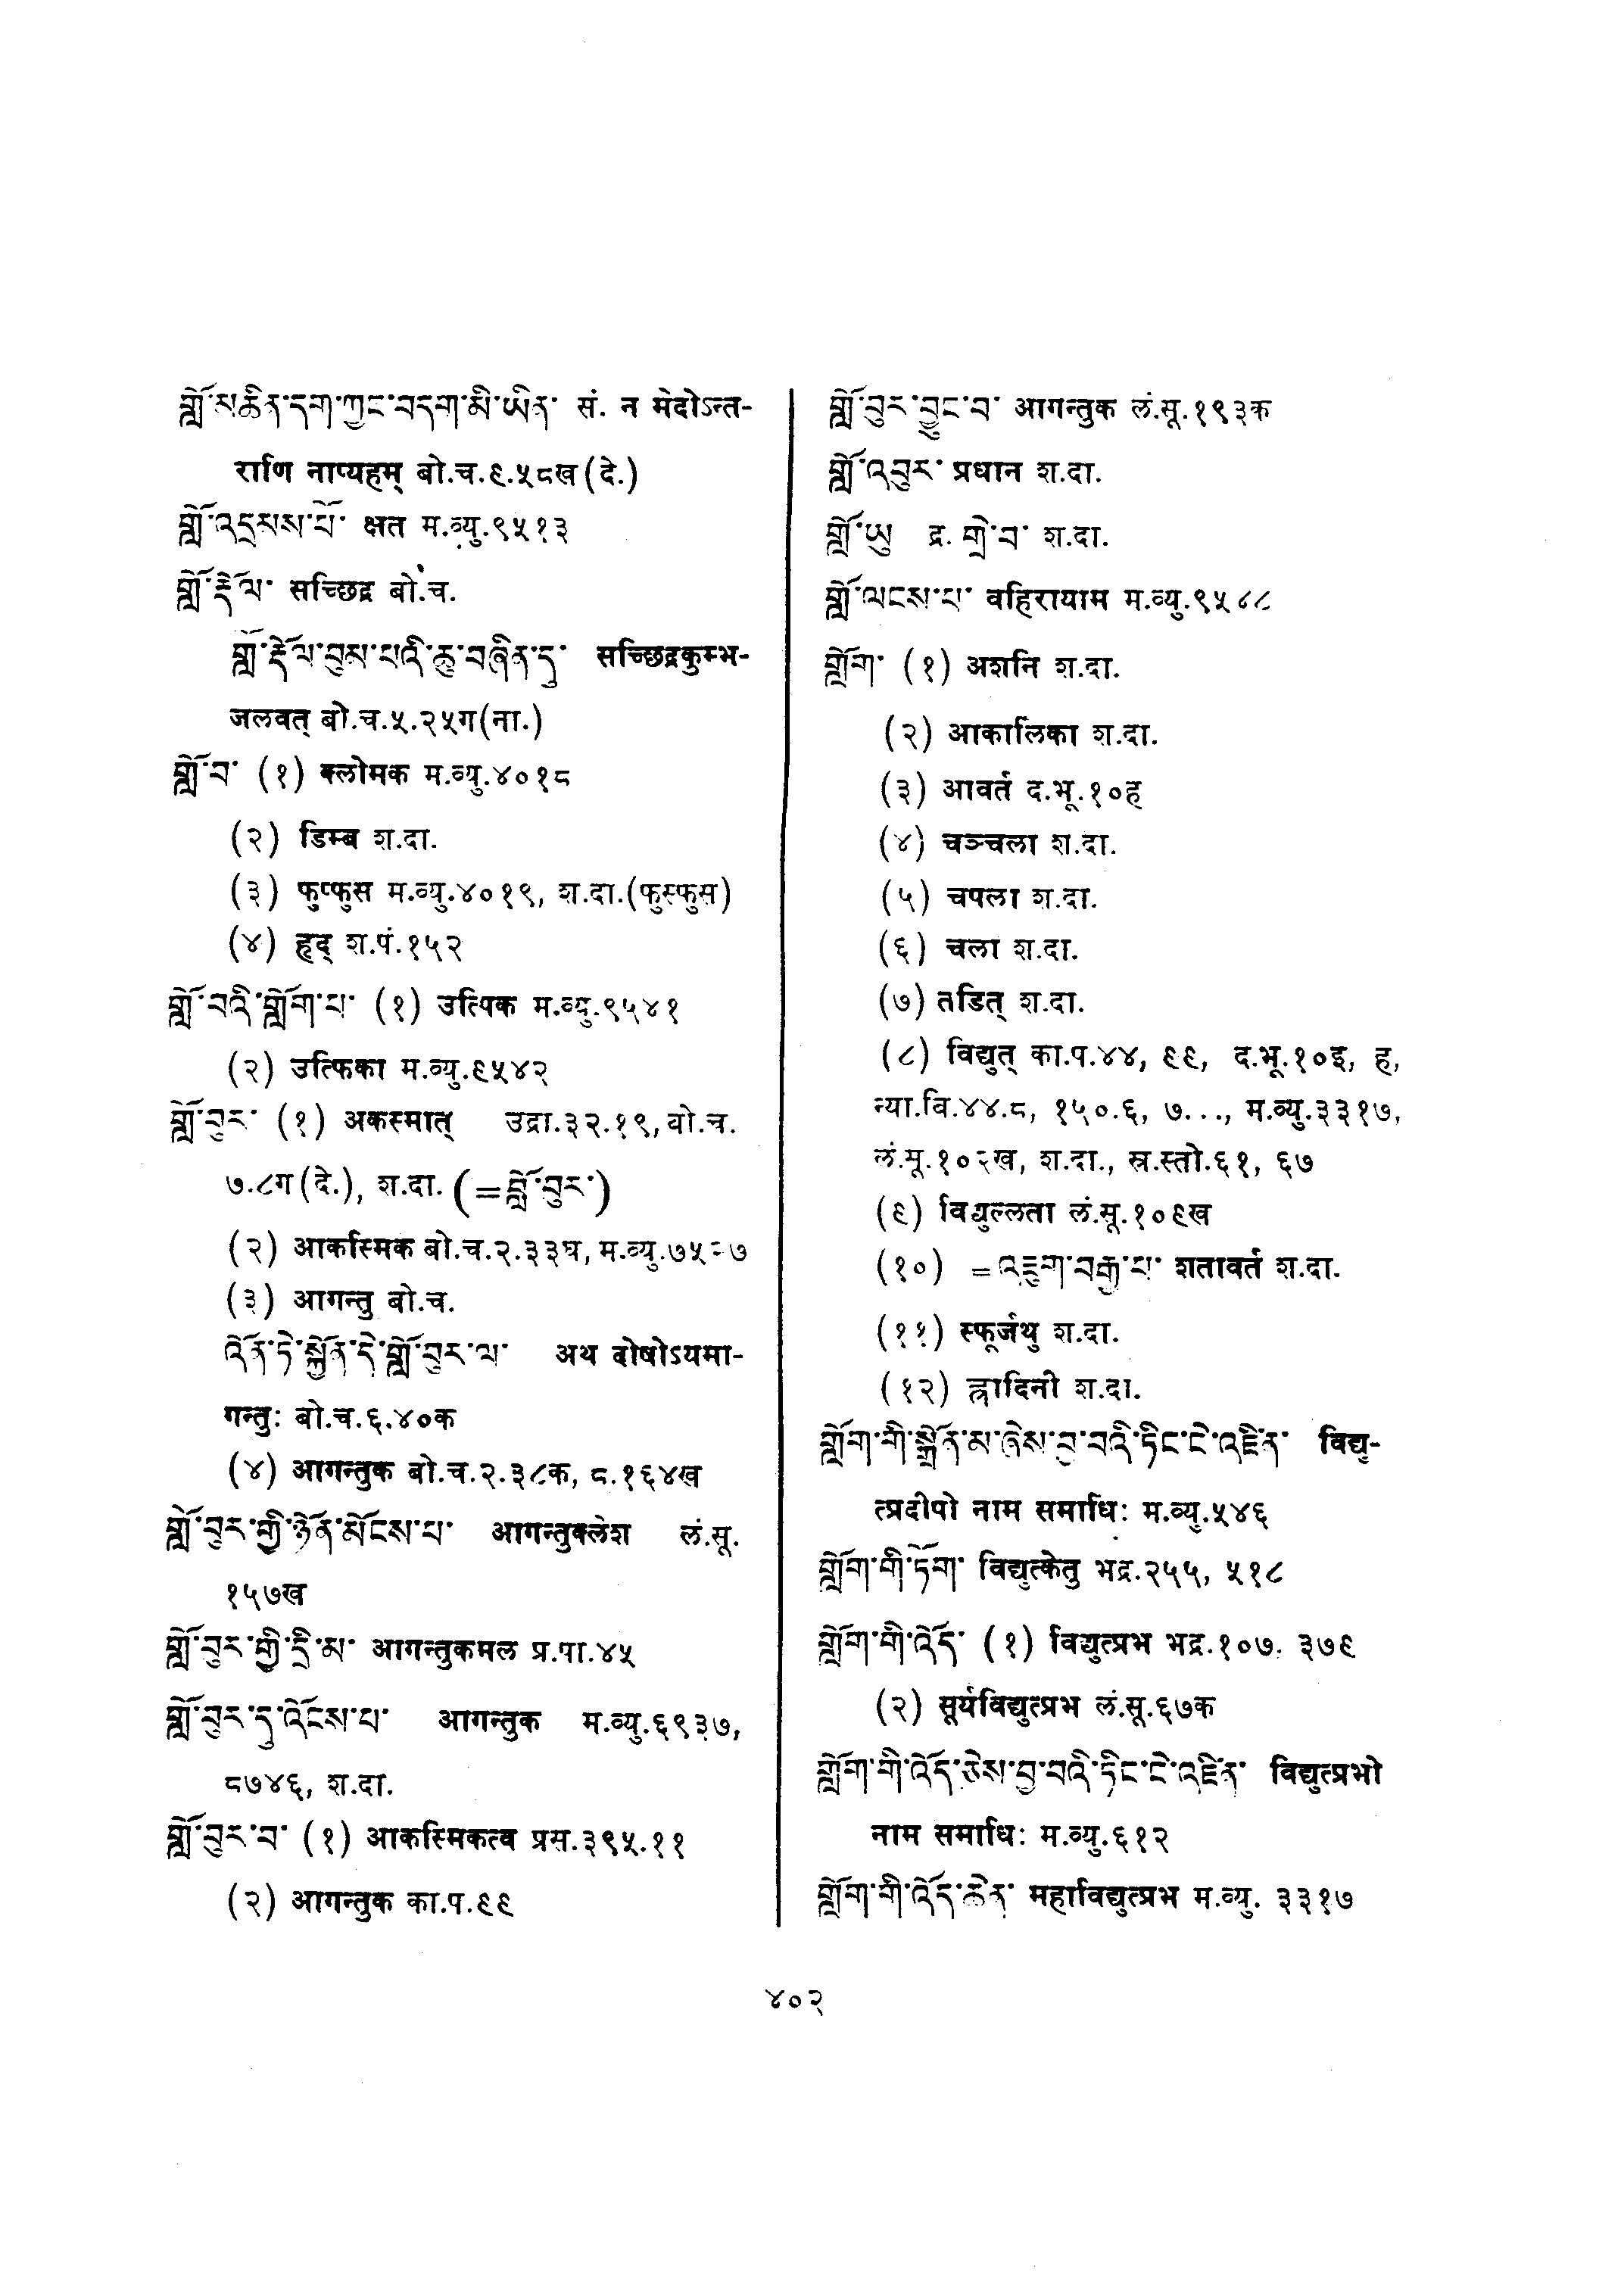 གློ་མཆིན་དག་ཀྱང་བདག་མི་ཡིན་ सं. न मेदोऽन्त-
राणि नाप्यहम् बो.च.९.५८ख(दे.)
གློ་འདྲམས་པོ་ क्षत म.व्यु.९५१३
གློ་རྡོལ་ सच्छिद्र बो.च.
གློ་རྡོལ་བུམ་པའི་ཆུ་བཞིན་དུ་ सच्छिद्रकुम्भ-
जलवत् बो.च.५.२५ग(ना.)
གློ་བ་ (१) क्लोमक म.व्यु.४०१८
(२) डिम्ब श.दा.
(३) फुप्फुस म.व्यु.४०१९, श.दा.(फुस्फुस)
(४) हृद् श.पं.१५२
གློ་བའི་གློག་པ་ (१) उत्पिक म.व्यु.९५४१
(२) उत्फिका म.व्यु.९५४२
གློ་བུར་ (१) अकस्मात् उद्रा.३२.१९, बो.च.
७.८ग(दे.), श.दा. (=བློ་བུར་)
(२) आकस्मिक बो.च.२.३३घ, म.व्यु.
(३) आगन्तु बो.च.
འོན་ཏེ་སྐྱོན་དེ་གློ་བུར་ལ་ अथ दोषोऽयमा-
गन्तुः बो.च.६.४०क
(४) आगन्तुक बो.च.२.३८क, ८.१६४ख
གློ་བུར་གྱི་ཉོན་མོངས་པ་ आगन्तुक्लेश लं.सू.
१५७ख
གློ་བུར་གྱི་དྲི་མ་ आगन्तुकमल प्र.पा.४५
གློ་བུར་དུ་འོངས་པ་ आगन्तुक म.व्यु.६९३७,
८७४६, श.दा.
གློ་བུར་བ་ (१) आकस्मिकत्व प्रस.३९५.११
(२) आगन्तुक का.प.९९
གློ་བུར་བྱུང་བ་ आगन्तुक लं.सू.१९३क
གློ་འབུར་ प्रधान श.दा.
གློ་ཡུ द्र. གྲེ་བ་ श.दा.
གློ་ལངས་པ་ वहिरायाम म.व्यु.९५४८
གློག་ (१) अशनि श.दा.
(२) आकालिका श.दा.
(३) आवर्त द.भू.१०ह
(४) चञ्चला श.दा.
(५) चपला श.दा.
(६) चला श.दा.
(७) तडित् श.दा.
(८) विद्युत् का.प.४४, ९९, द.भू.१०इ, ह,
न्या.वि.४४.८, १५०.६, ७..., म.व्यु.३३१७,
लं.सू.१०२ख, श.दा., स्र.स्तो.६१, ६७
(९) विद्युल्लता लं.सू.१०९ख
(१०) =འཇུག་བརྒྱ་པ་ शतावर्त श.दा.
(११) स्फूर्जथु श.दा.
(१२) ह्रादिनी श.दा.
གློག་གི་སྒྲོན་མ་ཞེས་བྱ་བའི་ཏིང་ངེ་འཛིན་ विद्यु-
त्प्रदीपो नाम समाधिः म.व्यु.५४६
གློག་གི་ཏོག་ विद्युत्केतु भद्र.२५५, ५१८
གློག་གི་འོད་ (१) विद्युत्प्रभ भद्र.१०७. ३७९
(२) सूर्यविद्युत्प्रभ लं.सू.६७क
གློག་གི་འོད་ཅེས་བྱ་བའི་ཏིང་ངེ་འཛིན་ विद्युत्प्रभो
नाम समाधिः म.व्यु.६१२
གློག་གི་འོད་ཆེན་ महाविद्युत्प्रभ म.व्यु. ३३१७
४०२